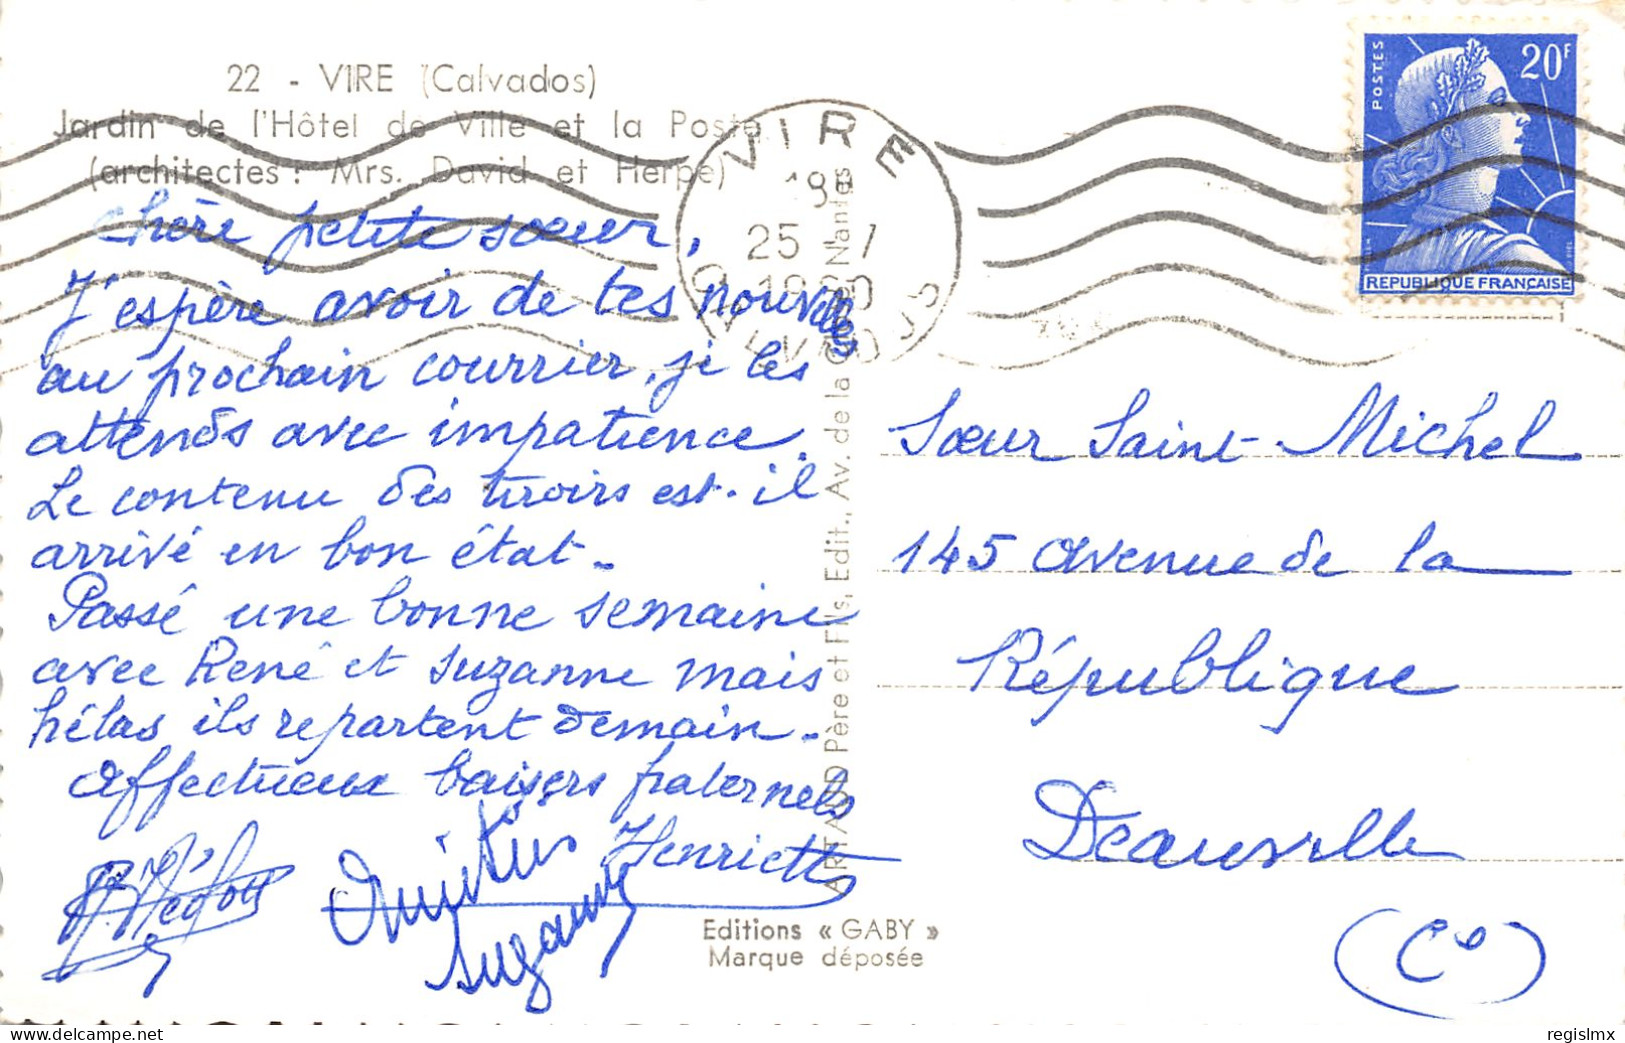 22 - VIRE (Calvados)
Jardin de l'Hôtel de Ville et la Poste
(architectes : Mrs. David et Herpe)
Chère petite sœur,
J'espère avoir de tes nouvelles
au prochain courrier, je les
attends avec impatience.
Le contenu des tiroirs est-il
arrivé en bon état -
Passé une bonne semaine
avec René et Suzanne mais
hélas ils repartent demain -
Affectueux baisers fraternels
Henriette
Suzanne
Editions « GABY »
Marque déposée
ARTAUD Père et Fils, Edit., Av. de la Nantes
VIRE
18
25 - 1
1960
CALVADOS
POSTES
20F
REPUBLIQUE FRANÇAISE
Sœur Saint-Michel
145 Avenue de la
République
Deauville
(Cos)
regislmx